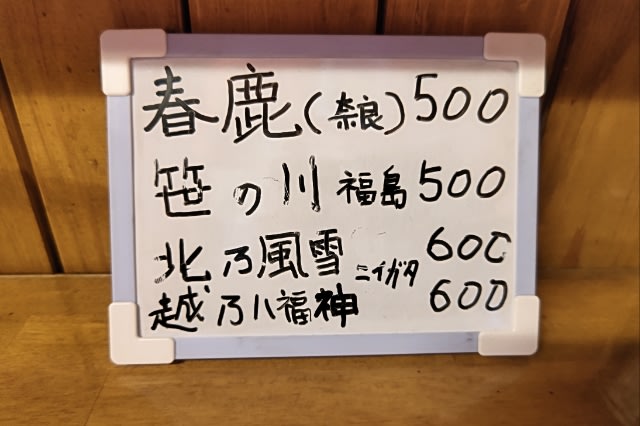 春鹿(奈良)500
笹の川 福島 500
北乃風雪 ニイガタ 600
越乃八福神 600